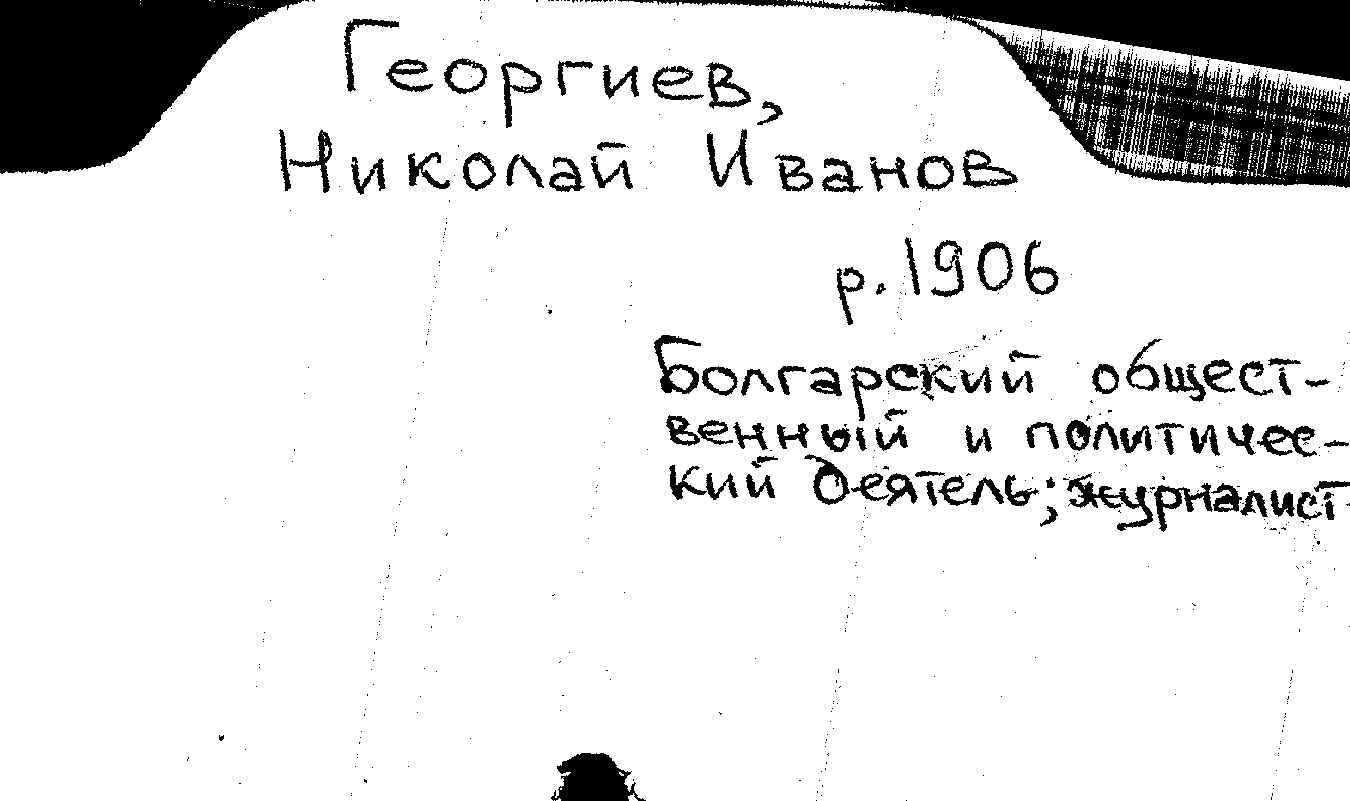 Георгиев,
Николай Иванов
р. 1906
Болгарский общест-
венный и политичес-
кий деятель; журналист